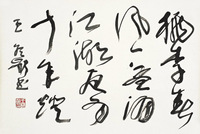 桃李春
风一杯酒
江湖夜雨
十年灯